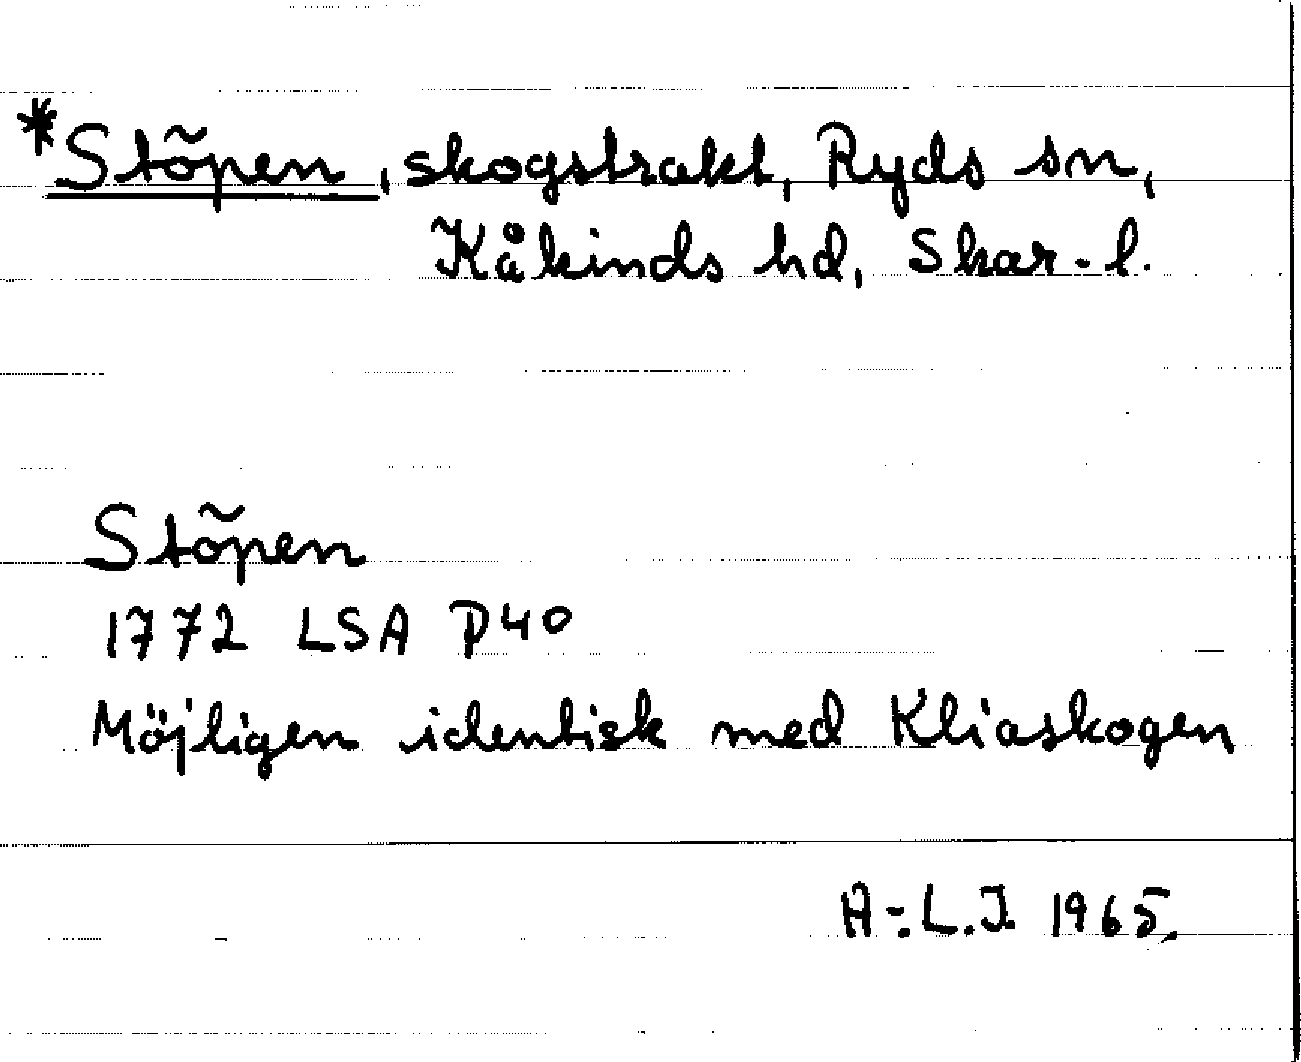 *Stõpen, skogstrakt, Ryds sn,
Kåkinds hd, Skar-l.
Stõpen
1772 LSA P40
Möjligen identisk med Kliaskogen
A-.L.J. 1965.